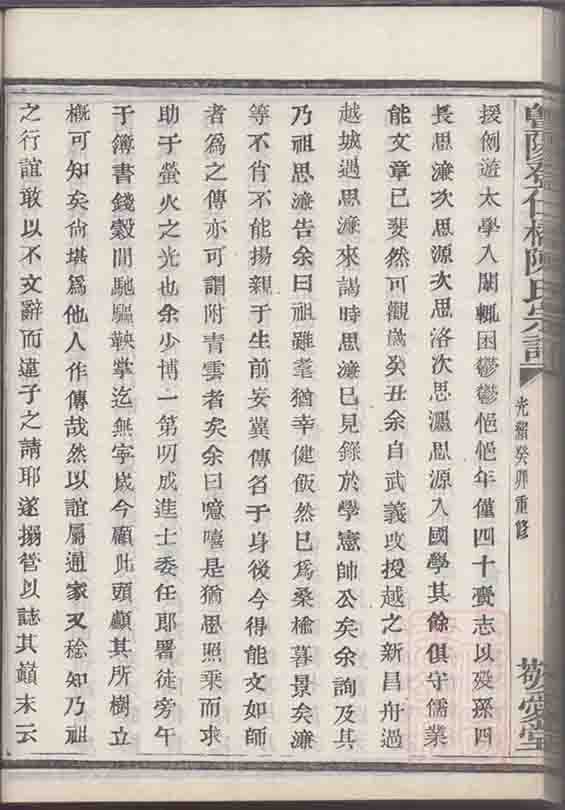 暨陽登仁橋陳氏宗譜
光緒癸卯重修
敬愛堂
援例遊太學入闈輒困鬱鬱悒悒年僅四十賫志以歿孫四
長思濂次思源次思洛次思瀛思源入國學其餘俱守儒業
能文章已斐然可觀歲癸丑余自武義改授越之新昌舟過
越城遇思濂來謁時思濂已見錄於學憲帥公矣余詢及其
乃祖思濂告余曰祖雖耄猶幸健飯然已爲桑榆暮景矣濂
等不肖不能揚親于生前妄冀傳名于身後今得能文如師
者爲之傳亦可謂附青雲者矣余曰噫嘻是猶思照乘而求
助于螢火之光也余少博一第叨成進士委任郎署徒旁午
于簿書錢穀間馳驅鞅掌迄無寧歲今顧此頭顱其所樹立
概可知矣尙堪爲他人作傳哉然以誼屬通家又稔知乃祖
之行誼敢以不文辭而違子之請耶遂搦管以誌其巔末云